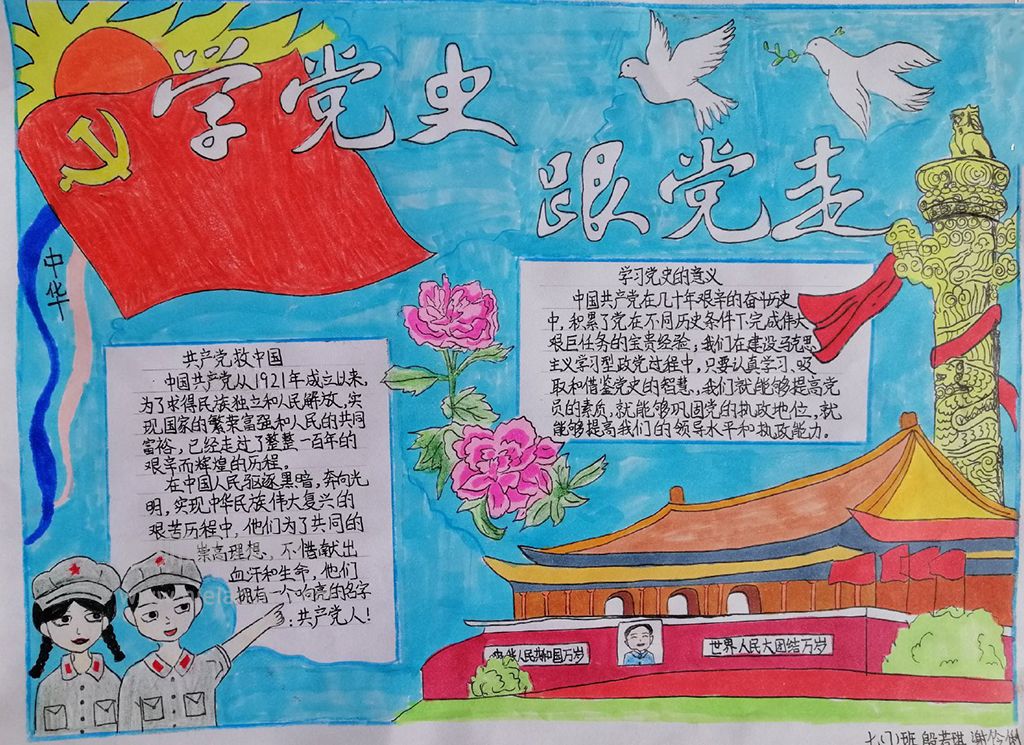 学党史
跟党走
中华
共产党救中国
中国共产党从1921年成立以来,
为了求得民族独立和人民解放,实
现国家的繁荣富强和人民的共同
富裕,已经走过了整整一百年的
艰辛而辉煌的历程。
在中国人民驱逐黑暗,奔向光
明,实现中华民族伟大复兴的
艰苦历程中,他们为了共同的
崇高理想,不惜献出
血汗和生命,他们
拥有一个响亮的名字
:共产党人!
学习党史的意义
中国共产党在几十年艰辛的奋斗历史
中,积累了党在不同历史条件下完成伟大
艰巨任务的宝贵经验,我们在建设马克思
主义学习型政党过程中,只要认真学习、吸
取和借鉴党史的智慧、我们就能够提高党
员的素质,就能够巩固党的执政地位,就
能够提高我们的领导水平和执政能力。
中华人民共和国万岁
世界人民大团结万岁
班 殷若琪 谢